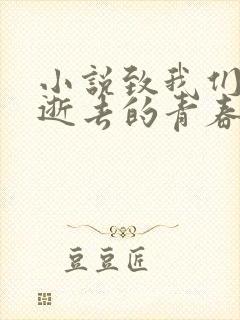 小说致我们
逝去的青春
豆豆匠